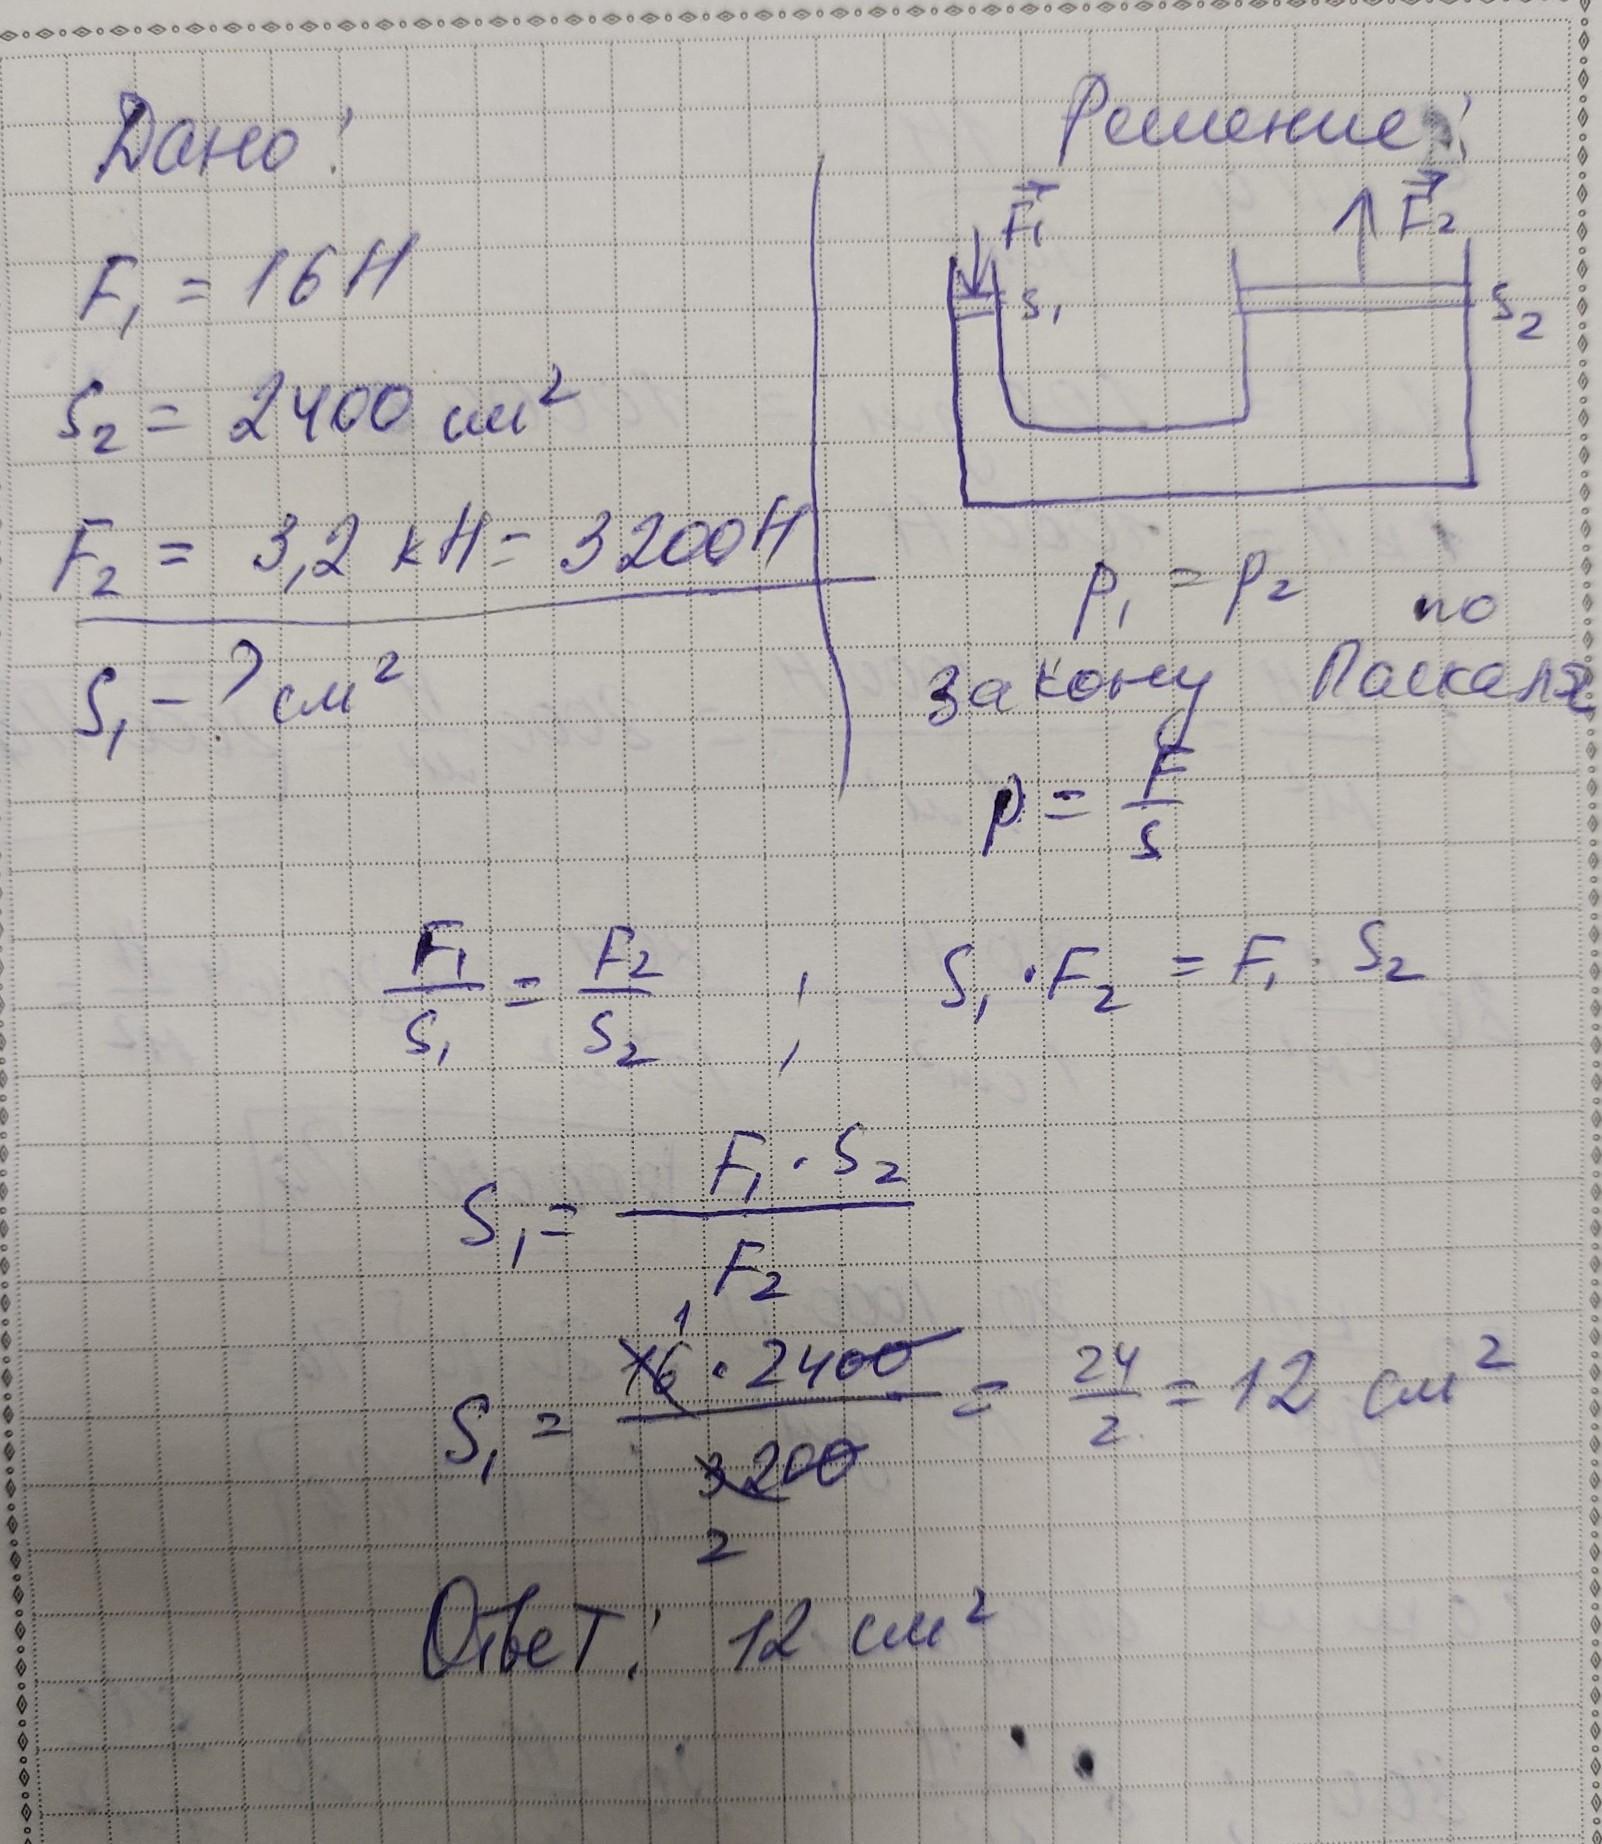 Дано:
F₁ = 16 Н
S₂ = 2400 см²
F₂ = 3,2 кН = 3200Н
S₁ - ? см²
Решение:
F₁ F₂
S₁ S₂
p₁ = p₂ по
закону Паскаля
p = F/S
F₁/S₁ = F₂/S₂ ; S₁ · F₂ = F₁ · S₂
S₁ = F₁ · S₂ / F₂
1
S₁ = 16 · 2400 / 3200 = 24/2 = 12 см²
2
Ответ: 12 см²